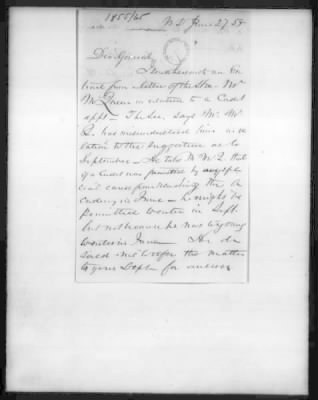 1855/65
W. D. June 27 55
Dear General,
I send herewith an Ex
tract from a letter of the Hon. Wm
McQueen in relation to a Cadet
appt — The Sec. says Mr. Mc
Q. has misunderstood him in re
lation to the suggestion as to
September — He told Mr McQ. that
if a Cadet was prevented by any spe
cial cause from reaching the A
cademy in June — he might be
permitted to enter in Sept.
but not because he was too young
to enter in June — He de
sired me to refer the matter
to your Dept for answer